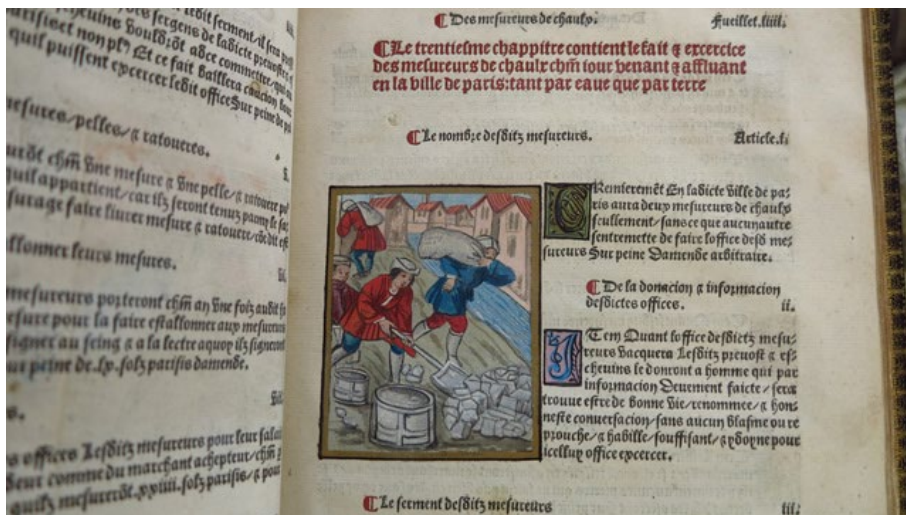 ledit serment / il sera
sergens de ladicte prevoste
parisis et non pl⁹) Et ce fait baillera caucion
quil puissent excercer ledit office Sur peine de
mesures / pelles / ⁊ ratoueres.
chm̃ Vne mesure ⁊ Vne pelle / ⁊ ratouere
quil appartient / car ilz seront tenuz parmy le
surage faire liurer mesure ⁊ ratouere /
leurs mesures.
mesureurs porteront chm̃ an Vne foiz audit
pour la faire estallonner aux mesureurs
au seing ⁊ a la lectre a quoy ilz
peine de .lx. solz parisis damende.
offices Lesditz mesureurs pour leur
comme du marchant achepteur / chm̃
quilz mesurerõt .xxiiii. solz parisis / ⁊ pour
¶ Des mesureurs de chaulx. Fueillet .liiii.
¶ Le trentiesme chappitre contient le fait ⁊ excercice
des mesureurs de chaulx chm̃ iour venant ⁊ affluant
en la ville de paris: tant par eaue que par terre
¶ Le nombre desditz mesureurs. Article .i.
Remieremẽt En ladicte Ville de pa⸗
ris aura deux mesureurs de chaulx
seullement / sans ce que aucun autre
sentremette de faire loffice desd̃ me⸗
sureurs Sur peine Damende arbitraire.
¶ De la donacion ⁊ informacion
desdictes offices. ii.
ITem Quant loffice desditz mesu⸗
reurs Vacquera Lesditz preuost ⁊ es⸗
cheuins le donront a homme qui par
informacion Deuement faicte / sera
trouue estre de bonne Vie / renommee / ⁊ hon⸗
neste conuersacion / sans aucun blasme ou re
prouche / ⁊ habille / souffisant / ⁊ ydoyne pour
icelluy office excercer.
¶ Le serment desditz mesureurs iii.